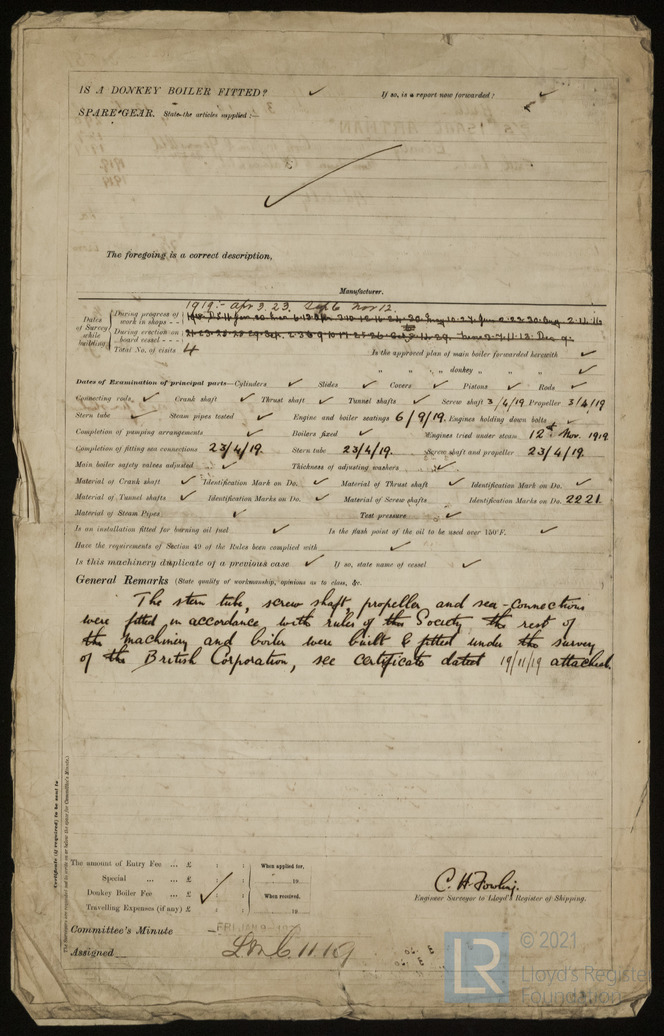 IS A DONKEY BOILER FITTED? ✓ If so, is a report now forwarded? ✓
SPARE GEAR. State the articles supplied:—
The foregoing is a correct description,
Manufacturer.
1919:- Apr 3. 23. Sept 6 Nov 12.
Dates of Survey while building
During progress of work in shops - -
During erection on board vessel - - -
Total No. of visits 4
Is the approved plan of main boiler forwarded herewith ✓
" " " donkey " " ✓
Dates of Examination of principal parts—Cylinders ✓ Slides ✓ Covers ✓ Pistons ✓ Rods ✓
Connecting rods ✓ Crank shaft ✓ Thrust shaft ✓ Tunnel shafts ✓ Screw shaft 3/4/19 Propeller 3/4/19
Stern tube ✓ Steam pipes tested ✓ Engine and boiler seatings 6/9/19. Engines holding down bolts ✓
Completion of pumping arrangements ✓ Boilers fixed ✓ Engines tried under steam 12th Nov. 1919
Completion of fitting sea connections 23/4/19. Stern tube 23/4/19. Screw shaft and propeller 23/4/19
Main boiler safety valves adjusted ✓ Thickness of adjusting washers ✓
Material of Crank shaft ✓ Identification Mark on Do. ✓ Material of Thrust shaft ✓ Identification Mark on Do. ✓
Material of Tunnel shafts ✓ Identification Marks on Do. ✓ Material of Screw shafts Identification Marks on Do. 2221.
Material of Steam Pipes ✓ Test pressure ✓
Is an installation fitted for burning oil fuel ✓ Is the flash point of the oil to be used over 150°F. ✓
Have the requirements of Section 49 of the Rules been complied with ✓
Is this machinery duplicate of a previous case ✓ If so, state name of vessel ✓
General Remarks (State quality of workmanship, opinions as to class, &c.
The stern tube, screw shaft, propeller and sea-connections
were fitted in accordance with rules of this Society the rest of
the machinery and boiler were built & fitted under the survey
of the British Corporation, see certificate dated 19/11/19 attached.
Certificate (if required) to be sent to
The amount of Entry Fee ... £ : : When applied for,
Special ... ... £ : : 19
Donkey Boiler Fee ... £ : : When received,
Travelling Expenses (if any) £ : : 19
C. H. Dowling.
Engineer Surveyor to Lloyd's Register of Shipping.
Committee's Minute FRI.
Assigned
LR
© 2021
Lloyd's Register
Foundation